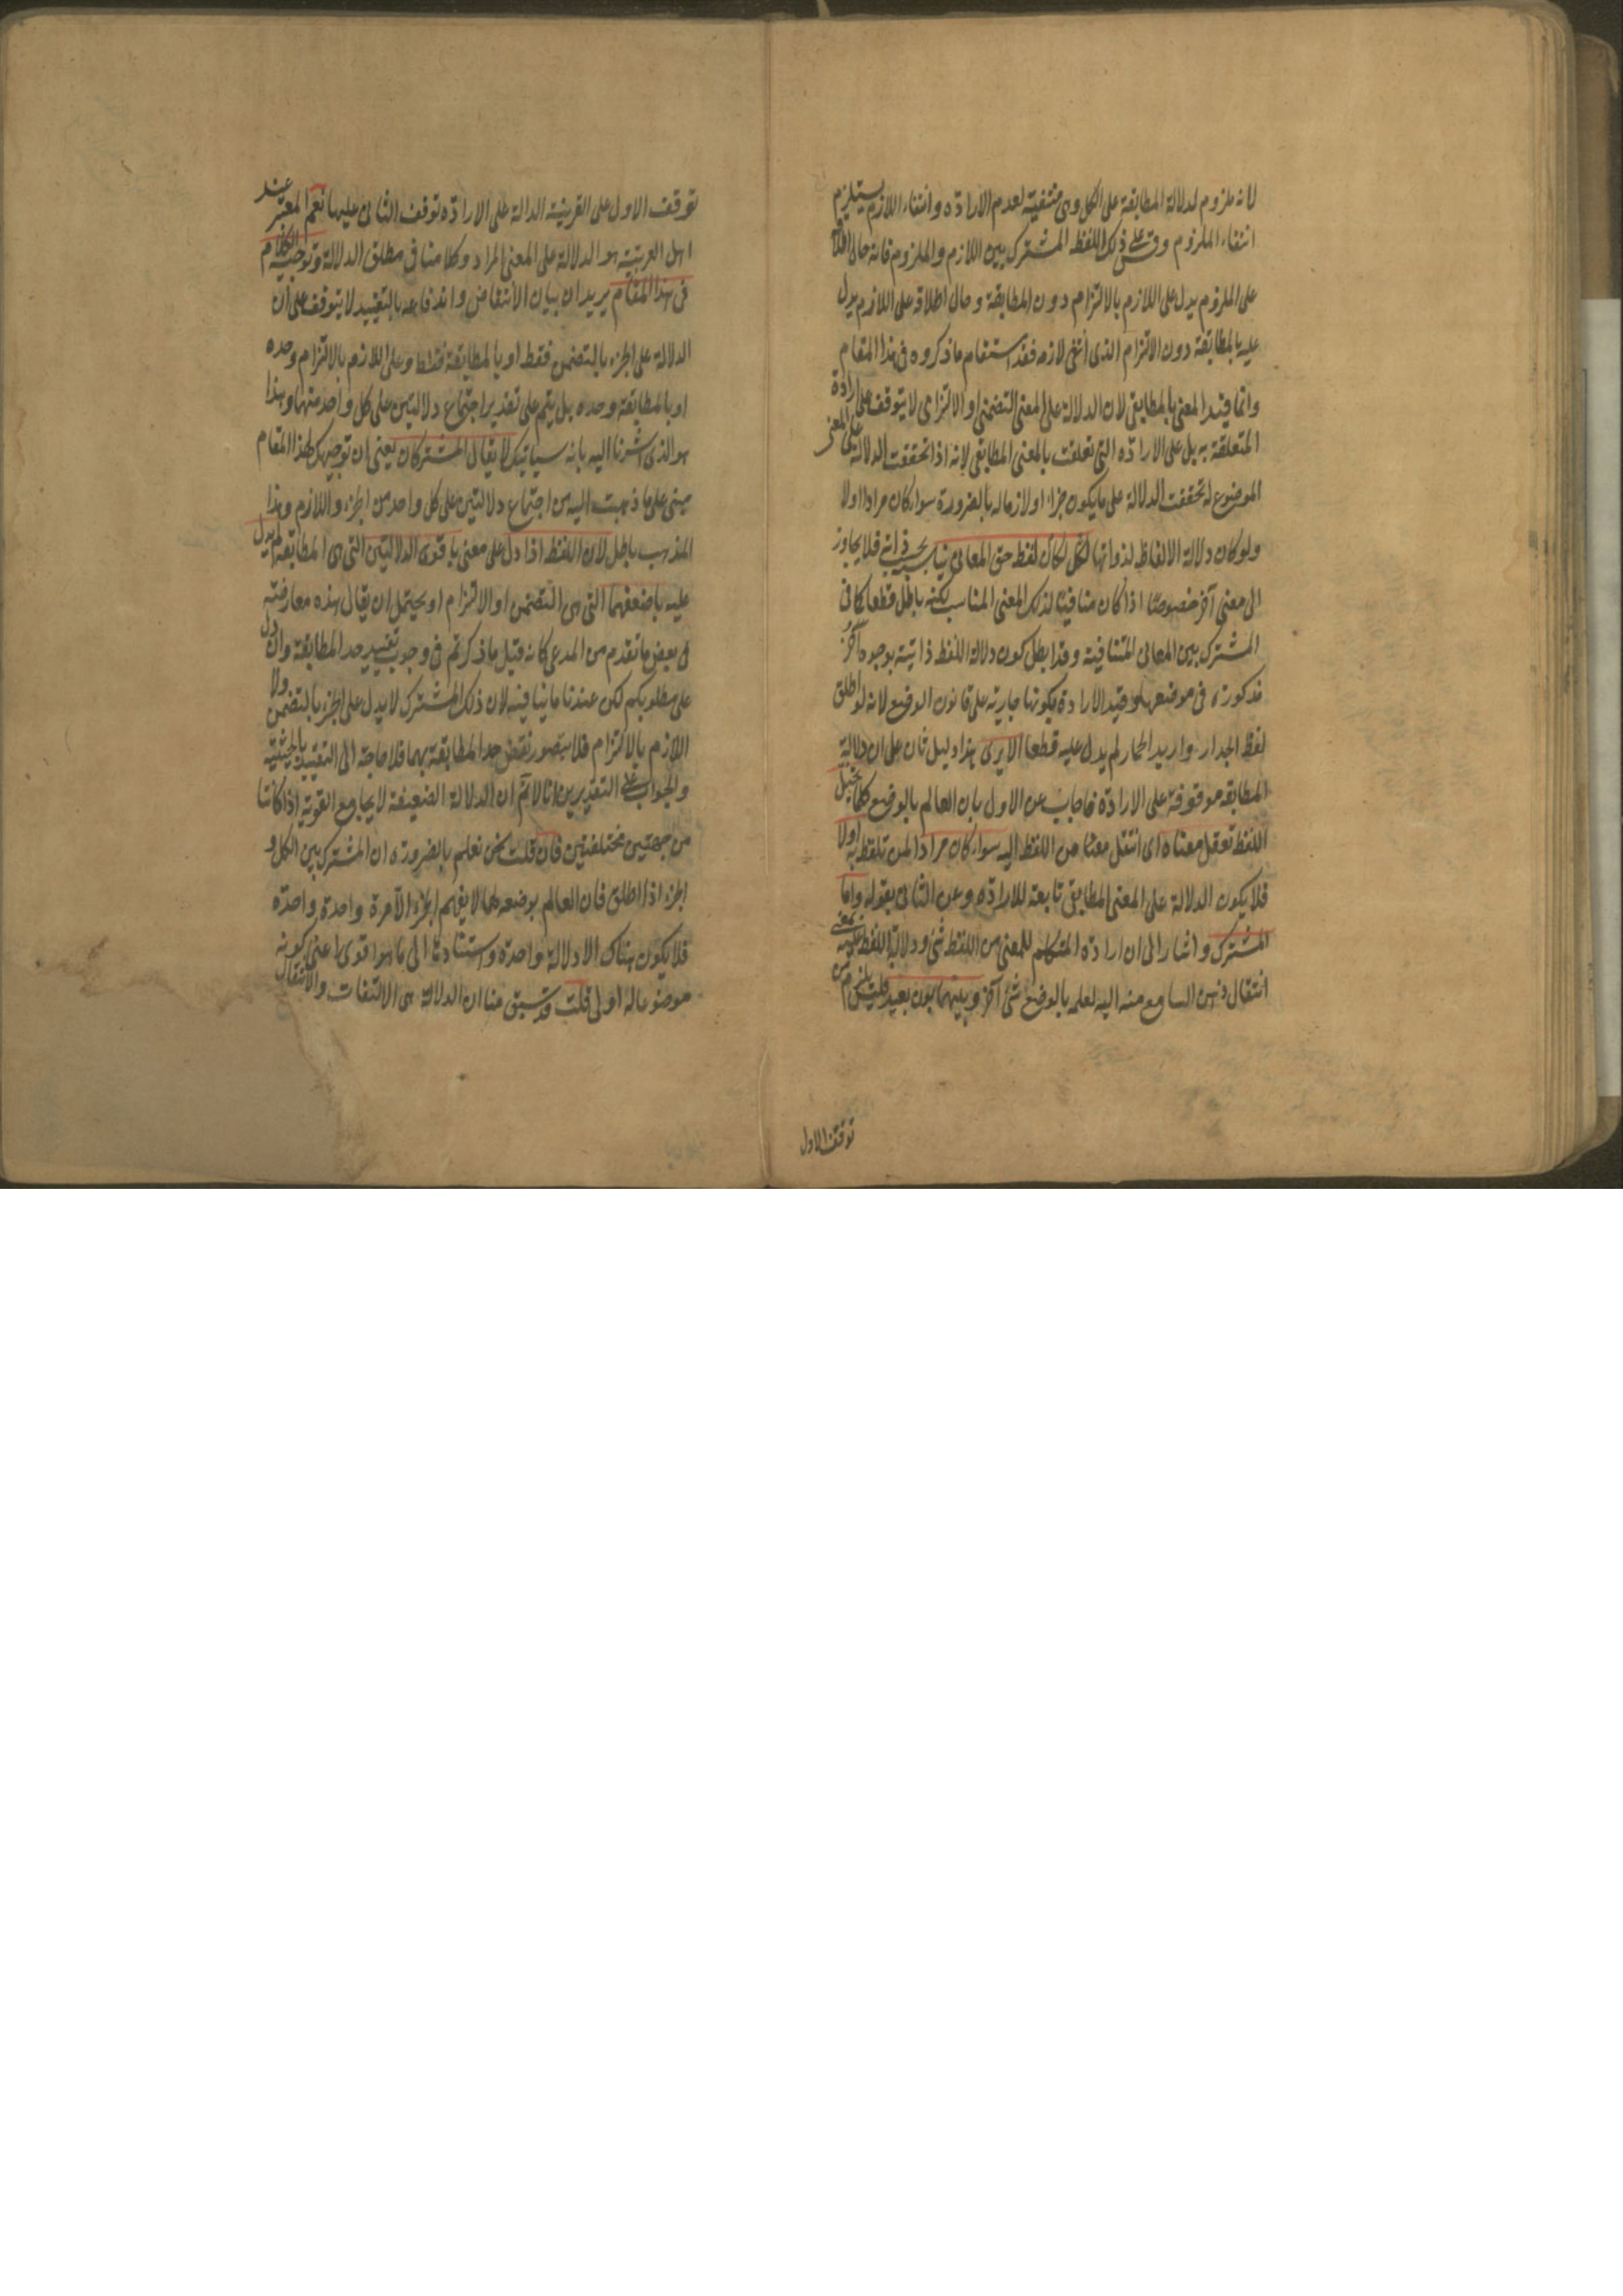 لانه ملزوم لدلالة المطابقة على الكل وهى منتفية لعدم الارادة وانتفاء اللازم يستلزم
انتفاء الملزوم وقس على ذلك اللفظ المشترك بين اللازم والملزوم فانه حال اطلاقه
على الملزوم يدل على اللازم بالالتزام دون المطابقة وحال اطلاقه على اللازم يدل
عليه بالمطابقة دون الالتزام الذى انتفى لازمه فقد استقام ما ذكروه فى هذا المقام
وانما قيد المعنى بالمطابقى لان الدلالة على المعنى التضمنى او الالتزامى لا يتوقف على ارادة
المتعلقة به بل على الارادة التى تعلقت بالمعنى المطابقى لانه اذا تحققت الدلالة على المعنى
الموضوع له تحققت الدلالة على ما يكون جزاء او لازما له بالضرورة سواء كان مرادا اولا
ولو كان دلالة الالفاظ لذواتها لكل لكان لفظ حق المعانى يناسبه بحسب ذاته فلا يجاوز
الى معنى آخر خصوصا اذا كان منافيا لذلك المعنى المناسب لكنه باطل قطعا كما فى
المشترك بين المعانى المتنافية وقد ابطل كون دلالة اللفظ ذاتية بوجوه أخر
مذكورة فى موضعها وقيد الارادة بكونها جارية على قانون الوضع لانه لو اطلق
لفظ الجدار واريد الحمار لم يدل عليه قطعا الا يرى هذا دليل ثان على ان دلالة
المطابقة موقوفة على الارادة فاجاب عن الاول بان العالم بالوضع كلما تخيل
اللفظ تعقل معناه اى انتقل معناه من اللفظ اليه سواء كان مرادا لمن تلفظ به اولا
فلا يكون الدلالة على المعنى المطابقى تابعة للارادة وعن الثانى بقوله واما
المشترك واشار الى ان ارادة المتكلم للمعنى من اللفظ شئ ودلالة اللفظ عليه بمعنى
انتقال ذهن السامع منه اليه لعلمه بالوضع شئ آخر وبينهما بون بعيد فليس يلزم من
توقف الاول
توقف الاول على القرينة الدالة على الارادة توقف الثانى عليها نعم المعتبر عند
اهل العربية هو الدلالة على المعنى المراد وكلامنا فى مطلق الدلالة وتوجيه الكلام
فى هذا المقام يريد ان بيان الانتقاض واندفاعه بالتقييد لا يتوقف على ان
الدلالة على الجزء بالتضمن فقط او بالمطابقة فقط وعلى اللازم بالالتزام وحده
او بالمطابقة وحده بل يتم على تقدير اجتماع دلالتين على كل واحد منها وهذا
هو الذى اشرنا اليه بانه سيأتيك لا يقال المشترك ان يعنى ان توجيهك لهذا المقام
مبنى على ما ذهبت اليه من اجتماع دلالتين على كل واحد من الجزء واللازم وهذا
المذهب باطل لان اللفظ اذا دل على معنى باقوى الدلالتين التى هى المطابقة لم يدل
عليه باضعفهما التى هى التضمن او الالتزام او يحتمل ان يقال هذه معارضة
فى بعض ما تقدم من المدعى كانه قيل ما ذكرتم فى وجوب تقييد حد المطابقة وان دل
على مطلوبكم لكن عندنا ما ينافيه لان ذلك المشترك لا يدل على الجزء بالتضمن ولا
اللازم بالالتزام فلا يتصور نقض حد المطابقة بهما فلا حاجة الى التقييد بالحيثية
والجواب على التقديرين انا لا نم ان الدلالة الضعيفة لا يجامع القوية اذا كانتا
من جهتين مختلفتين فان قلت نحن نعلم بالضرورة ان المشترك بين الكل و
الجزء اذا اطلق فان العالم بوضعه لهما لا يفهم الجزء الا مرة واحدة واحدة
فلا يكون هناك الا دلالة واحدة واستنادنا الى ما هو اقوى اعنى كونه
موضوعا له اولى قلت قد سبق منا ان الدلالة هى الالتفات والانتقال